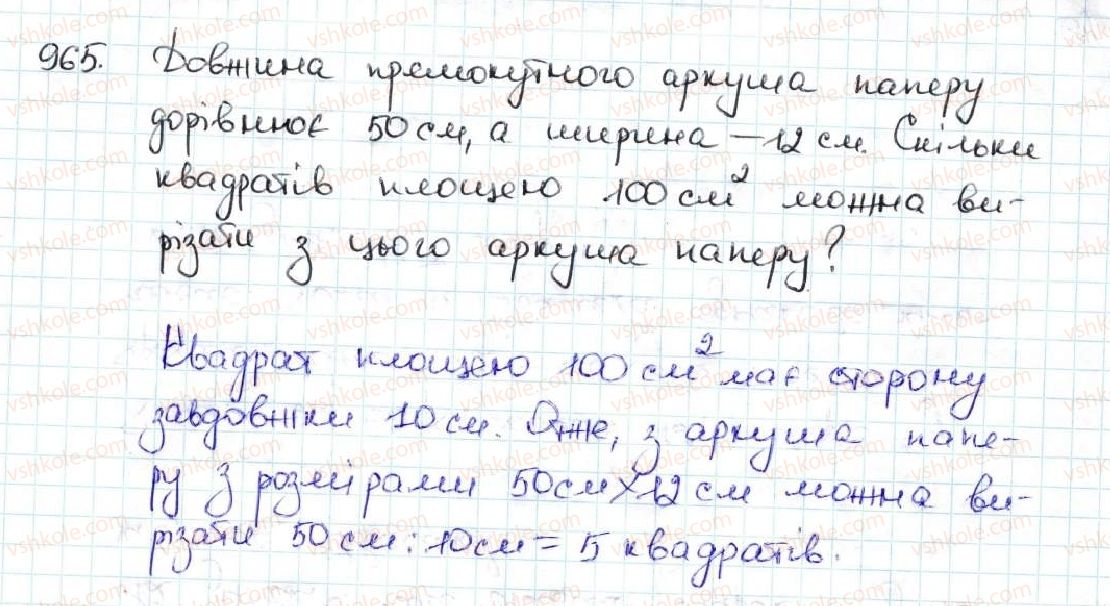 965. Довжина прямокутного аркуша паперу
дорівнює 50 см, а ширина – 12 см. Скільки
квадратів площею 100 см² можна ви-
різати з цього аркуша паперу?
Квадрат площею 100 см² має сторону
завдовжки 10 см. Отже, з аркуша папе-
ру з розмірами 50см×12 см можна ви-
різати 50 см : 10 см = 5 квадратів.
vshkole.com